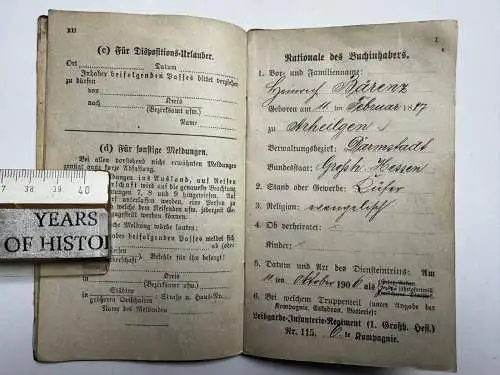 XII
(c) Für Dispositions-Urlauber.
Ort Datum
Inhaber beifolgenden Passes bittet vorgehen
zu dürfen
von
nach Kreis
(Bezirksamt usw.)
Name
(d) Für sonstige Meldungen.
Bei allen vorstehend nicht erwähnten Meldungen
genügt ganz kurze Abfassung.
ins Ausland, auf Reisen
auf die genaueste Beachtung
7, 8 und 9 hingewiesen.
beifolgenden Passes meldet sich
Befehle für ihn besagt)
Kreis
(Bezirksamt usw.)
Städten
größeren Ortschaften: Straße u. Haus-Nr.
Name des Meldenden
37 38 39 40
YEARS
OF HISTOR
1
Nationale des Buchinhabers.
1. Vor- und Familienname:
Heinrich Bärenz
Geboren am 11 ten Februar 1887
zu Arheilgen
Verwaltungsbezirk: Darmstadt
Bundesstaat: Großh. Hessen
2. Stand oder Gewerbe: Küfer
3. Religion: evangelisch
4. Ob verheiratet:
Kinder:
5. Datum und Art des Diensteintritts: Am
11 ten Oktober 1906 als
6. Bei welchem Truppenteil (unter Angabe der
Kompagnie, Eskadron, Batterie):
Leibgarde-Infanterie-Regiment (1. Großh. Hess.)
Nr. 115. 6 te Kompagnie.